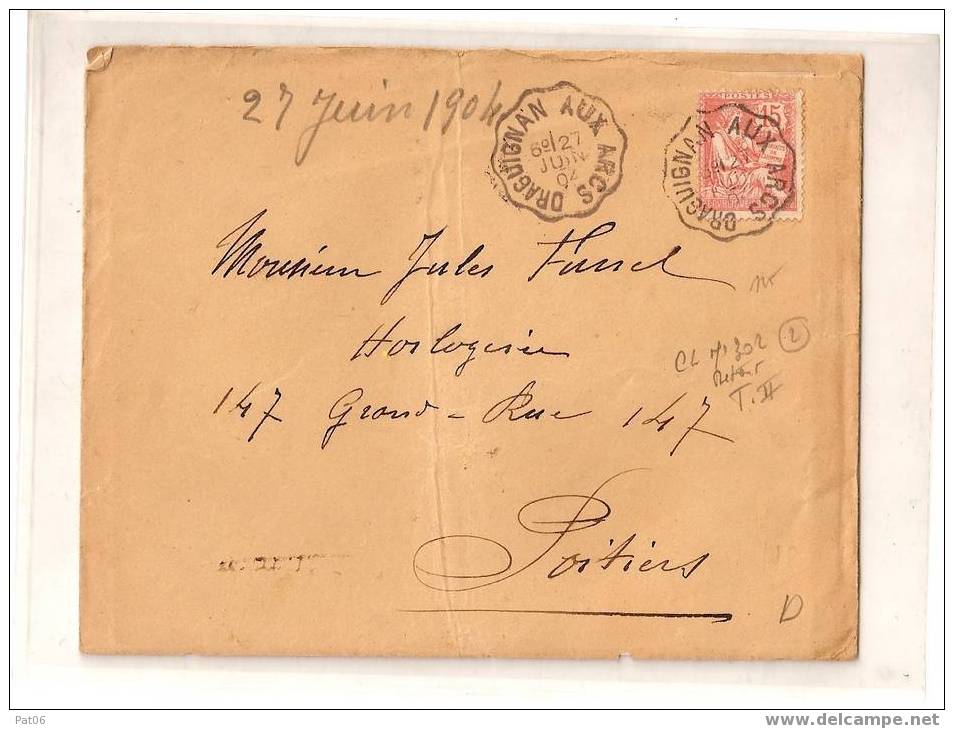 27 Juin 1904
DRAGUIGNAN AUX ARCS
6º/27
JUIN
04
POSTES
15
DRAGUIGNAN AUX ARCS
Monsieur Jules Fusel
Horlogerie
147 Grand-Rue 147
Poitiers
2
T. II
D
Pat06
www.delcampe.net